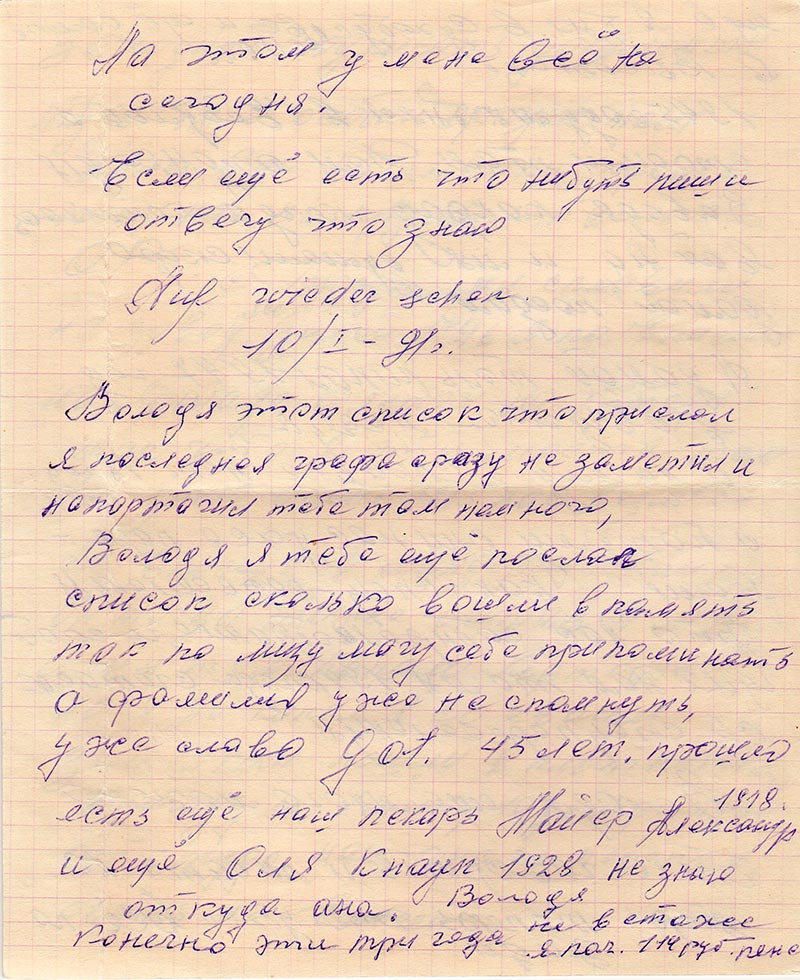 На этом у мене всё на
сегодня.
Если ещё есть что нибуть пиши
отвечу что знаю
Auf wieder sehen.
10/I - 91г.
Володя этот список что прислал
я последная графа сразу не заметил и
напортачил тебе там немного,
Володя я тебе ещё послал
список сколько вошли в память
так по лицу магу себе припоминать
а фамилия уже не спомнуть,
уже слава Gott. 45 лет. прошло
есть ещё наш пекарь Майер Александр 1918.
и ещё Оля Кнауп 1928 не знаю
откуда ана. Володя
Конечно эти три года не в стаже
я пол. 114 руб. пенс